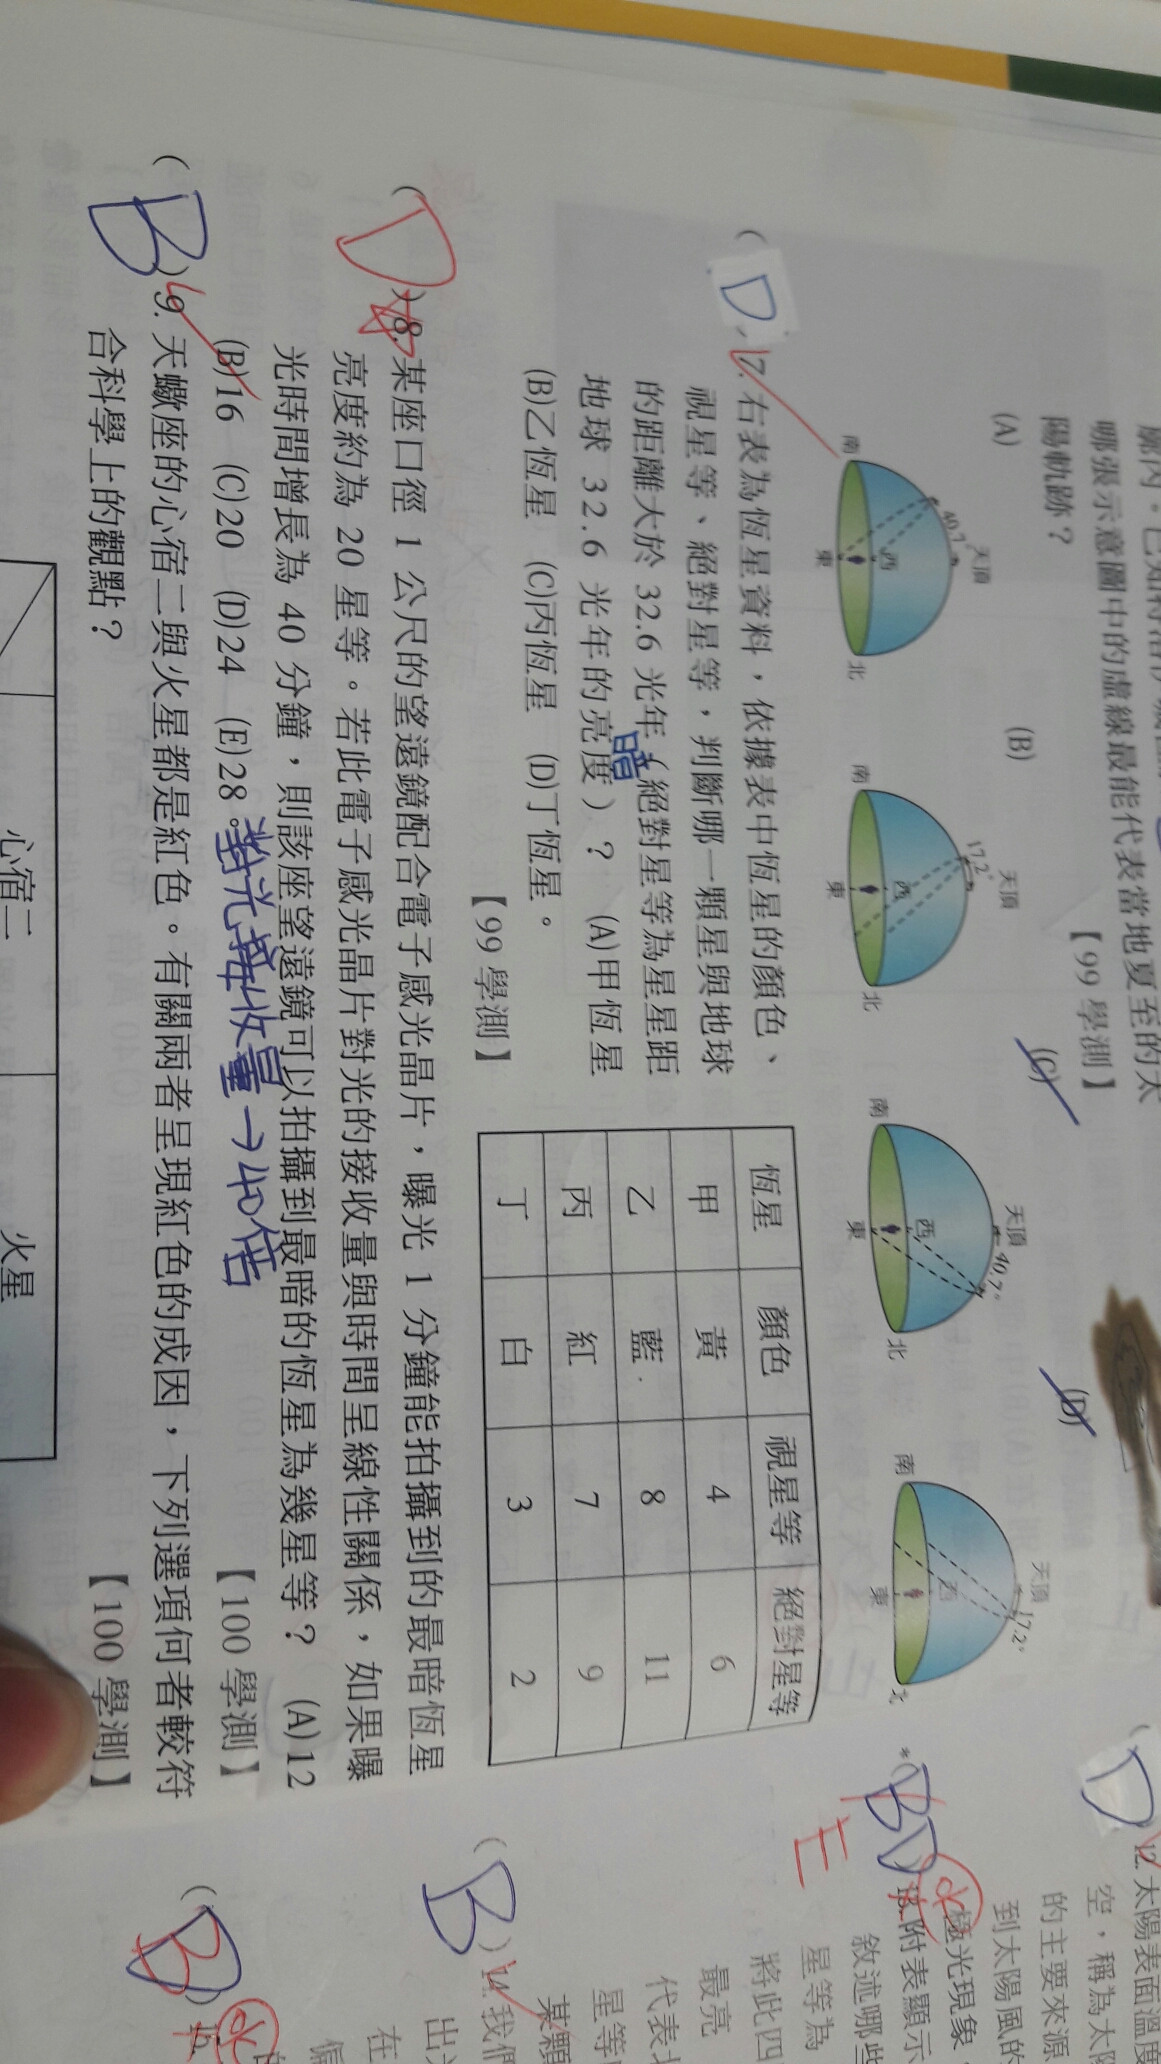 哪張示意圖中的虛線最能代表當地夏至的太
陽軌跡？
【99 學測】
(A)
(B)
(C)
(D)
南 東 西 北 天頂 40.7°
南 東 西 北 天頂 17.2°
南 東 西 北 天頂 40.7°
南 東 西 北 天頂 17.2°
( D )7. 右表為恆星資料，依據表中恆星的顏色、
視星等、絕對星等，判斷哪一顆星與地球
的距離大於 32.6 光年（絕對星等為星星距
暗
地球 32.6 光年的亮度）？ (A)甲恆星
(B)乙恆星 (C)丙恆星 (D)丁恆星。
【99 學測】
恆星 顏色 視星等 絕對星等
甲 黃 4 6
乙 藍 8 11
丙 紅 7 9
丁 白 3 2
( D )8. 某座口徑 1 公尺的望遠鏡配合電子感光晶片，曝光 1 分鐘能拍攝到的最暗恆星
亮度約為 20 星等。若此電子感光晶片對光的接收量與時間呈線性關係，如果曝
光時間增長為 40 分鐘，則該座望遠鏡可以拍攝到最暗的恆星為幾星等？ (A)12
(B)16 (C)20 (D)24 (E)28。
【100 學測】
對光接收量→40倍
( B )9. 天蠍座的心宿二與火星都是紅色。有關兩者呈現紅色的成因，下列選項何者較符
合科學上的觀點？
【100 學測】
心宿二 火星
( D )12. 太陽表面溫度
空，稱為太陽
的主要來源
到太陽風的
極光現象
BD
E
13. 附表顯示
敘述哪些
星等為
將此四
最亮
代表
星等
某顆
( B )14. 我們
出
在
偏
( B )15.